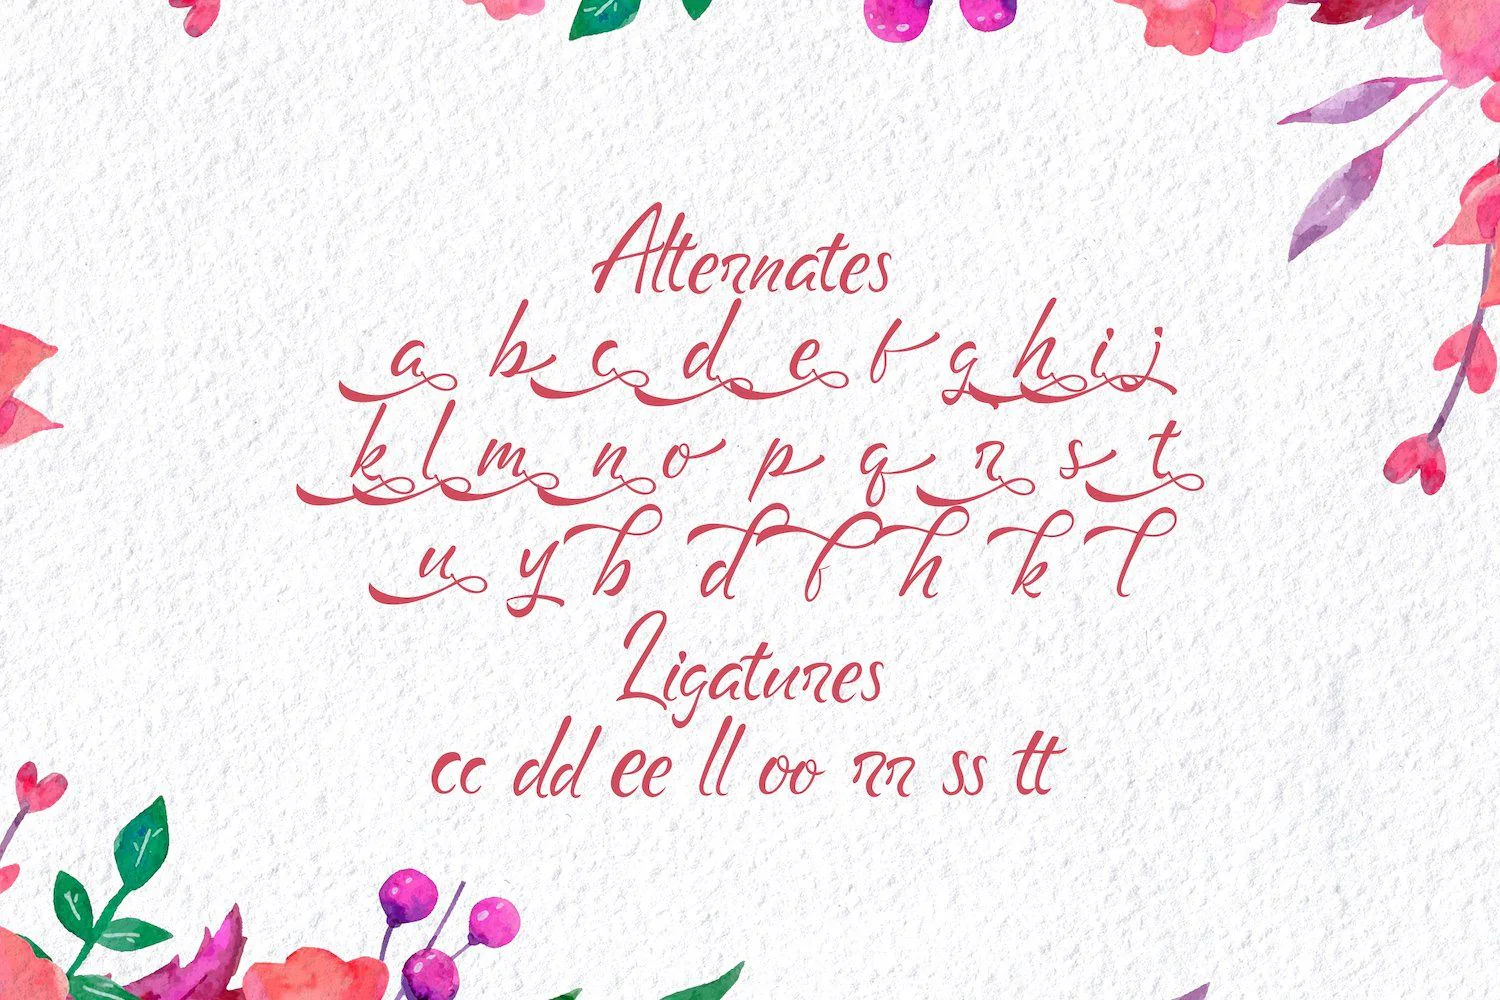 Alternates
a b c d e f g h i j
k l m n o p q r s t
u y b d f h k l
Ligatures
cc dd ee ll oo rr ss tt